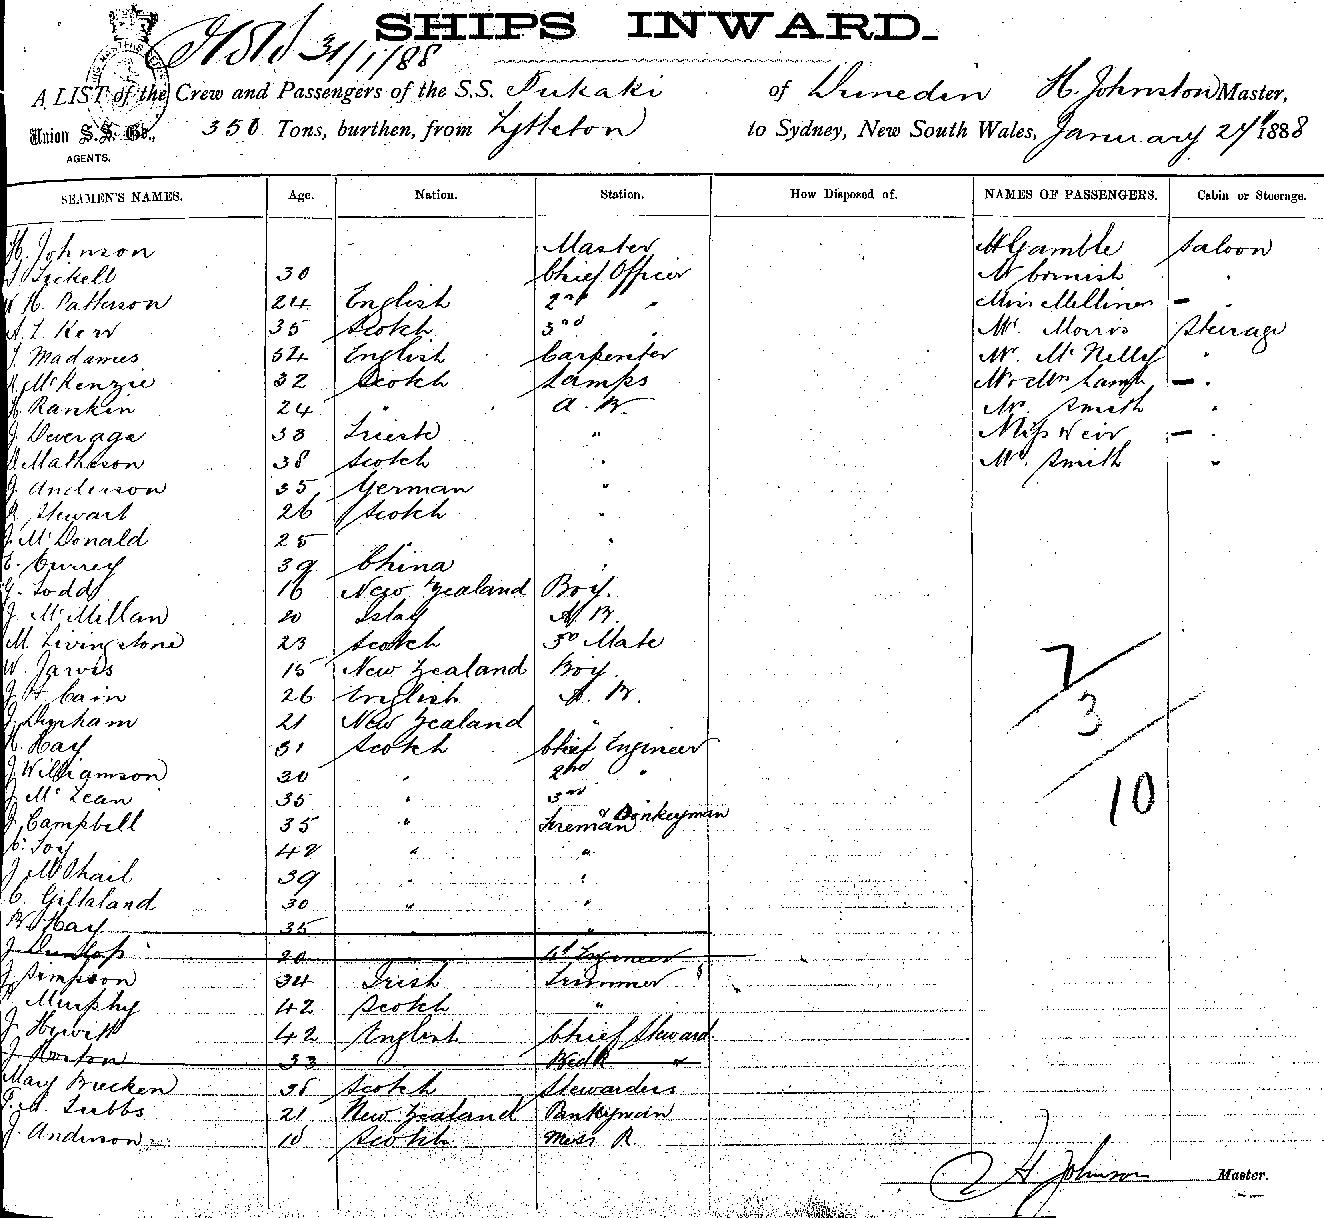 SHIPS INWARD.
31/1/88
A LIST of the Crew and Passengers of the S.S. Pukaki of Dunedin H. Johnston Master,
Union S.S. Co., 350 Tons, burthen, from Lyttleton to Sydney, New South Wales, January 24 1888
AGENTS.
SEAMEN'S NAMES. Age. Nation. Station. How Disposed of. NAMES OF PASSENGERS. Cabin or Steerage.
H. Johnson Master Mr Gamble Saloon
30 Chief Officer Mr Cornish "
H. Patterson 24 English 2nd " Miss "
A. L. Kerr 35 Scotch 3rd " Mr. Morris Steerage
34 English Carpenter Mr. McNelly "
McKenzie 32 Scotch Lamps Mr & Mrs Lamb "
Rankin 24 " A. B. Mr. Smith "
J. 33 " Miss Weir "
Matheson 38 Scotch " Mr. Smith "
J. Anderson 35 German "
Stewart 26 Scotch "
J. McDonald 25 " "
Currey 39 China "
G. Todd 16 New Zealand Boy.
J. McMillan 20 Islay A. B.
M. Livingstone 23 Scotch 3rd Mate
W. Jarvis 15 New Zealand Boy
J H Cain 26 English A. B.
J. Durham 21 New Zealand "
Hay 31 Scotch Chief Engineer
J. Williamson 30 " 2nd "
J. McLean 35 " 3rd
J. Campbell 35 " Fireman & Donkeyman
Foy 42 " "
J. McPhail 39 " "
C. Gilleland 30 " "
Hay 35 " "
J. Dunlop 20 Engineer
J. Simpson 34 Irish Trimmer
Murphy 42 Scotch "
J. Hewitt 42 English Chief Steward
J. Horton 33
Mary Bracken 38 Scotch Stewardess
Tubbs 21 New Zealand Pantryman
J. Anderson 18 Scotch Mess R
7/
3/
10
H. Johnson Master.